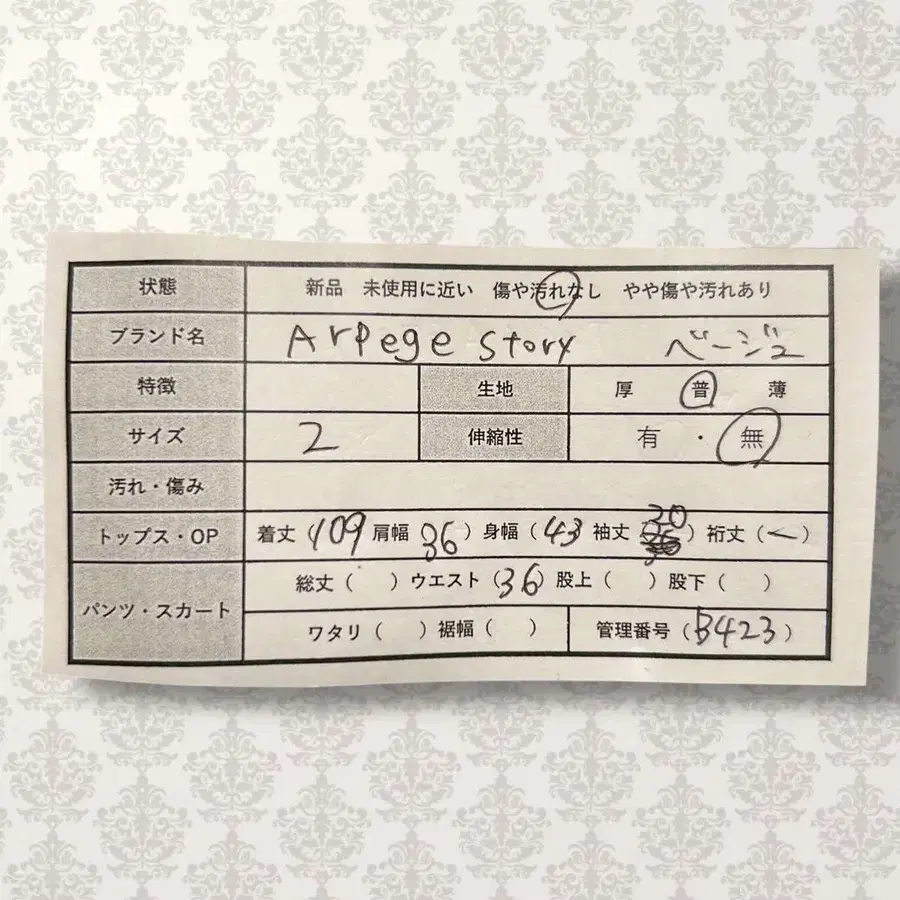 状態 新品 未使用に近い 傷や汚れなし やや傷や汚れあり
ブランド名 Arpege story ベージュ
特徴 生地 厚 普 薄
サイズ 2 伸縮性 有・無
汚れ・傷み
トップス・OP 着丈(109 肩幅 36) 身幅(43 袖丈 20) 裄丈(ー)
パンツ・スカート 総丈( )ウエスト(36)股上( )股下( )
ワタリ( )裾幅( ) 管理番号(B423)